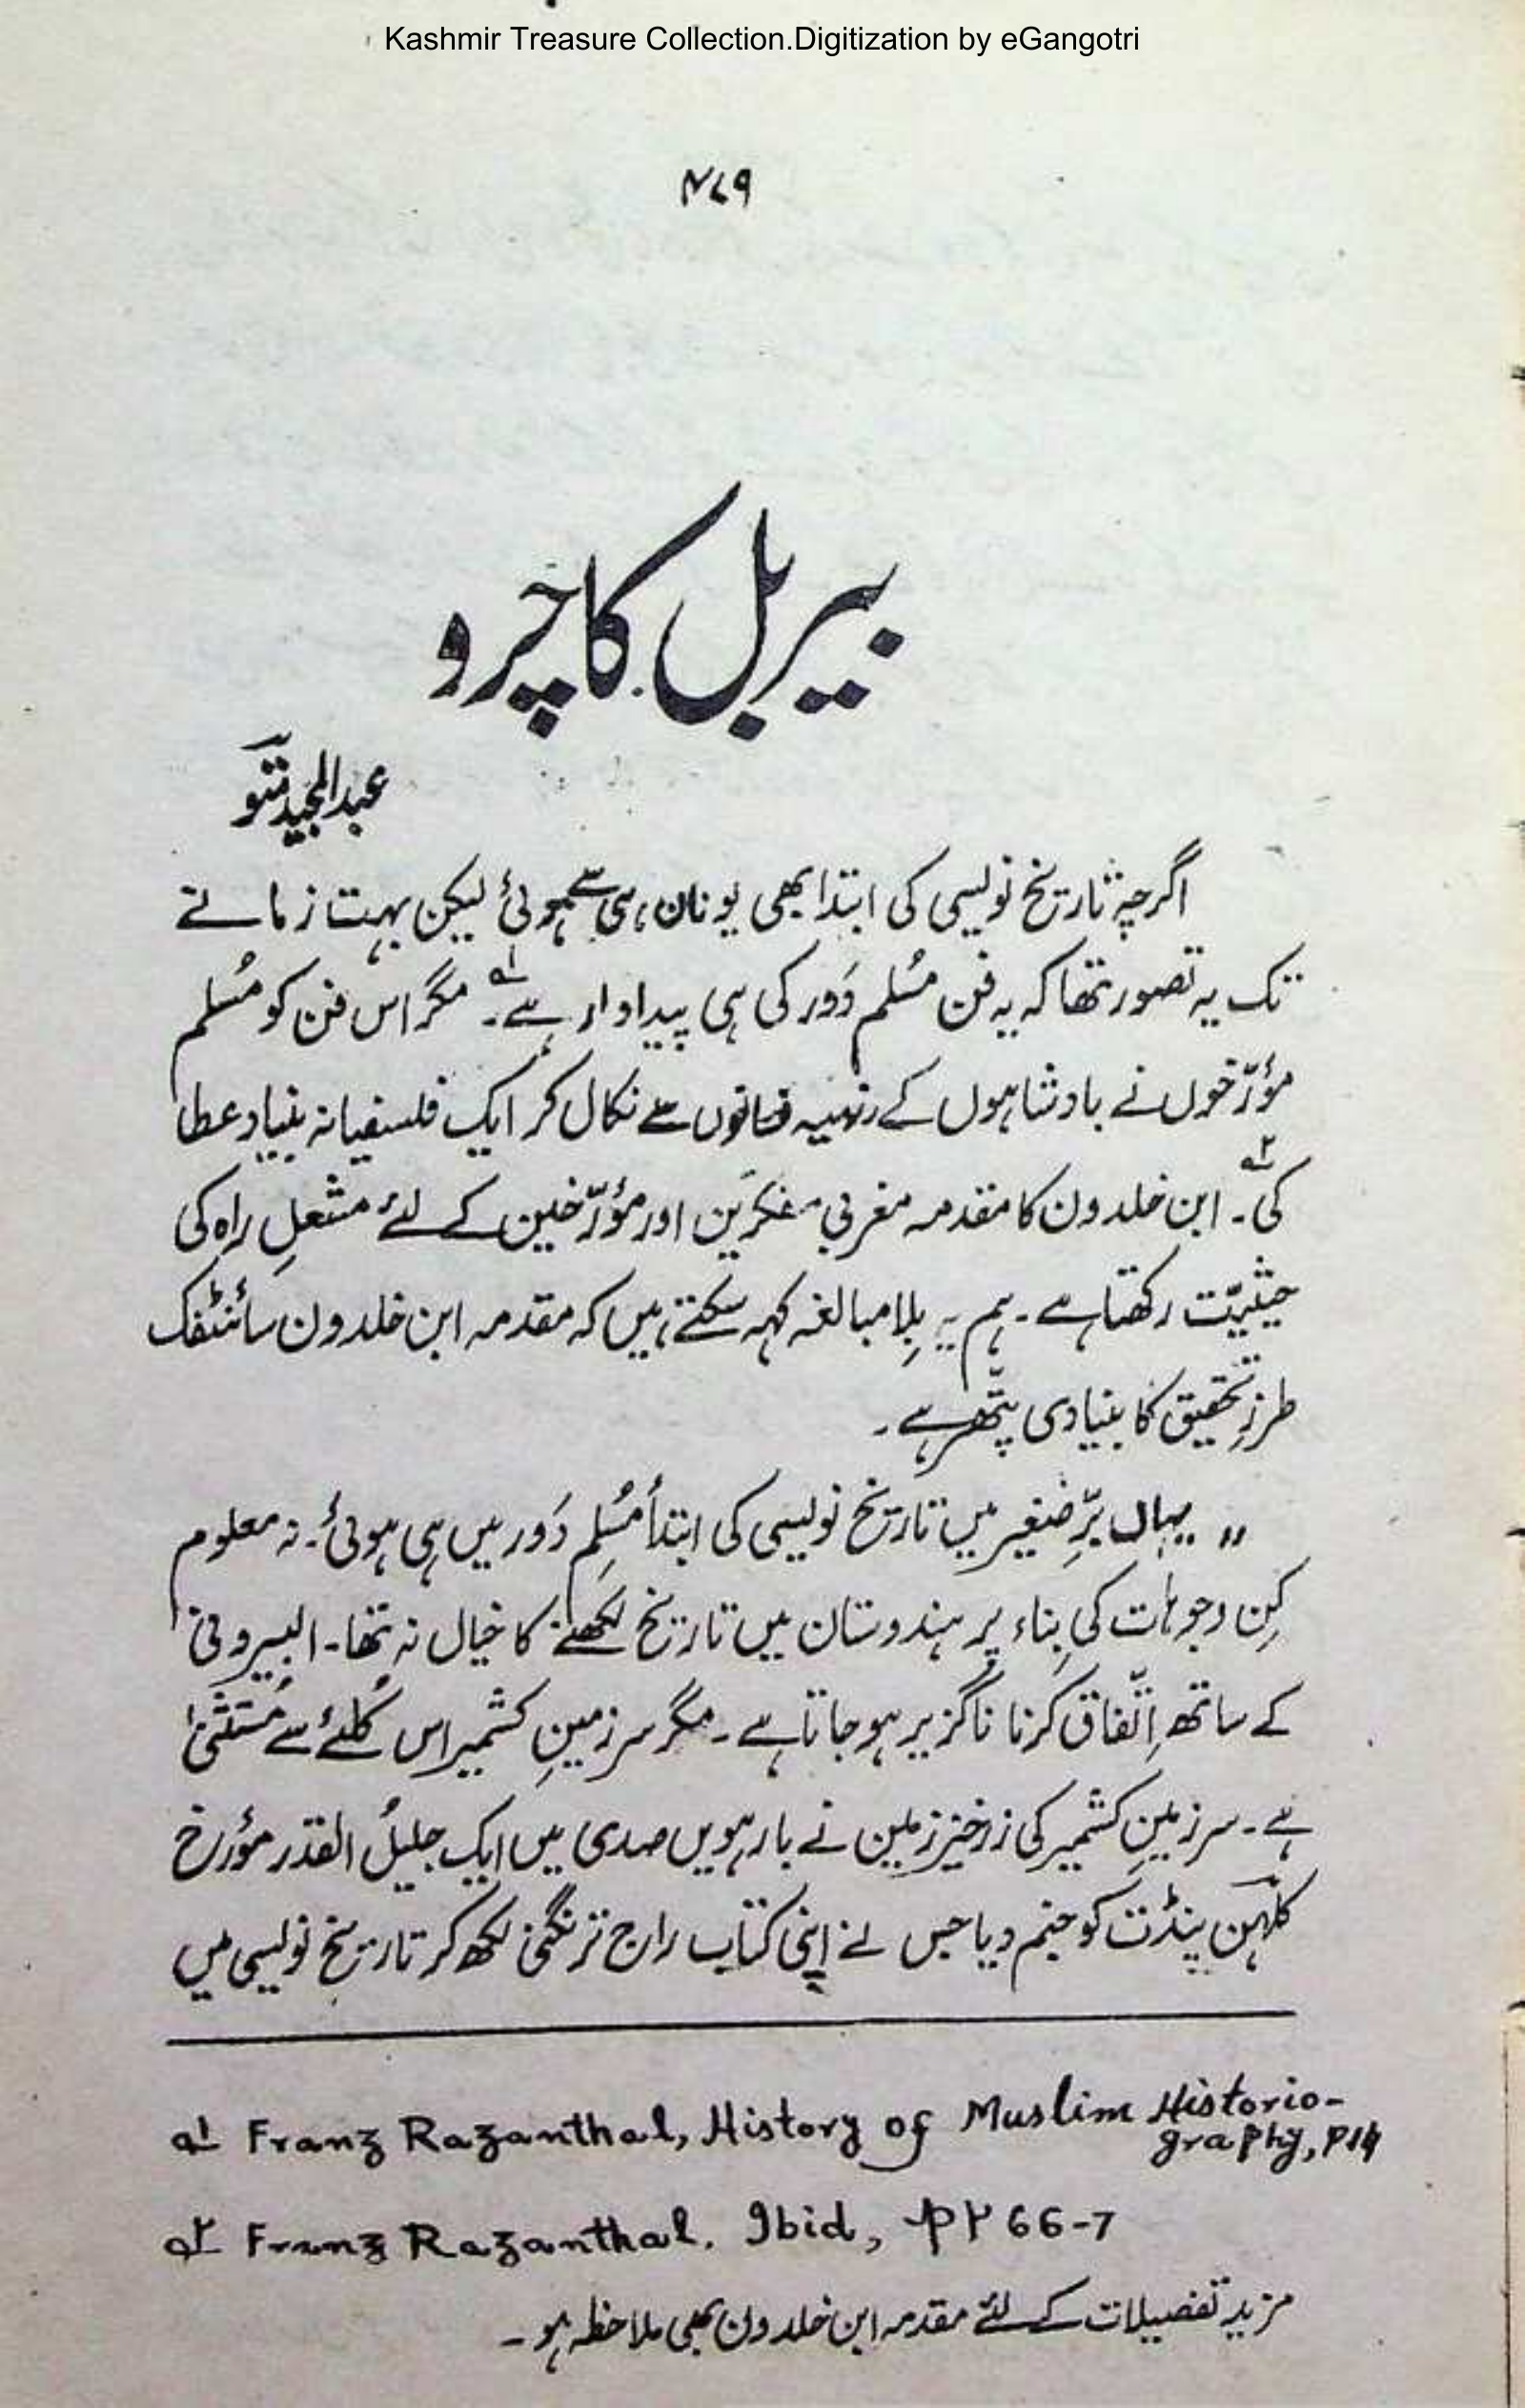 Kashmir Treasure Collection.Digitization by eGangotri
۴۷۹
بیربل کاچرو
عبدالمجید متو
اگرچہ تاریخ نویسی کی ابتدا بھی یونان ہی سے ہوئی لیکن بہت زمانے
تک یہ تصور تھا کہ یہ فن مُسلم دَور کی ہی پیداوار ہے۔۱؎ مگر اس فن کو مُسلم
مؤرّخوں نے بادشاہوں کے رزمیہ فسانوں سے نکال کر ایک فلسفیانہ بنیاد عطا
کی۲؎۔ ابن خلدون کا مقدمہ مغربی مفکرین اور مؤرّخین کے لئے مشعلِ راہ کی
حیثیّت رکھتا ہے۔ ہم یہ بلِا مبالغہ کہہ سکتے ہیں کہ مقدمہ ابن خلدون سائنٹفک
طرزِ تحقیق کا بنیادی پتّھر ہے۔
" یہاں برِّ صغیر میں تاریخ نویسی کی ابتدأ مُسلِم دَور میں ہی ہوئی۔ نہ معلوم
کِن وجوہات کی بِناء پر ہندوستان میں تاریخ لکھنے کا خیال نہ تھا۔ البیرونی
کے ساتھ اِتّفاق کرنا ناگزیر ہو جاتا ہے۔ مگر سرزمینِ کشمیر اس کُلئے سے مُستثنیٰ
ہے۔ سرزمینِ کشمیر کی زرخیز زمین نے بارہویں صدی میں ایک جلیلُ القدر مؤرخ
کلہن پنڈت کو جنم دیا جس نے اپنی کتاب راج ترنگنی لکھ کر تاریخ نویسی میں
۱؎ Franz Razanthal, History of Muslim Historio-
graphy, P14
۲؎ Franz Razanthal. Ibid, PP 66-7
مزید تفصیلات کے لئے مقدمہ ابن خلدون بھی ملاحظہ ہو۔